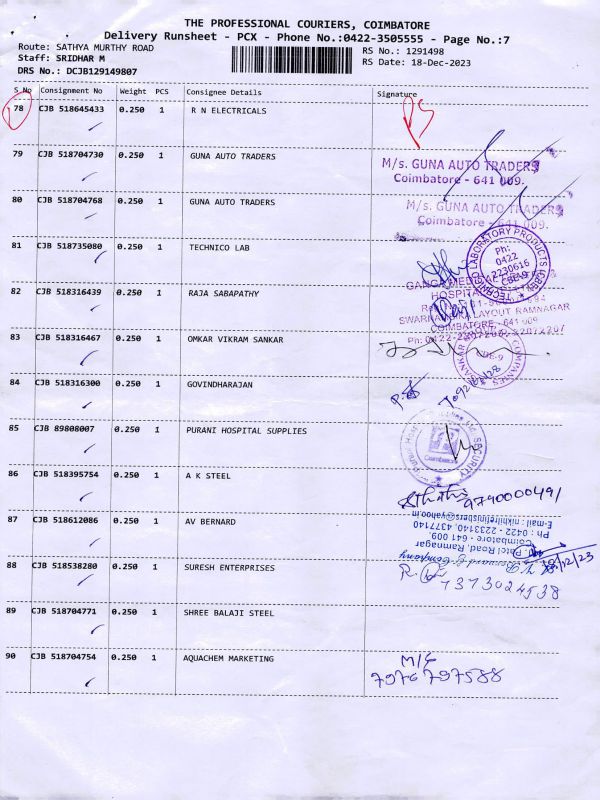 THE PROFESSIONAL COURIERS, COIMBATORE
Delivery Runsheet - PCX - Phone No.:0422-3505555 - Page No.:7
Route: SATHYA MURTHY ROAD
RS No.: 1291498
Staff: SRIDHAR M
RS Date: 18-Dec-2023
DRS No.: DCJB129149807
S No Consignment No Weight PCS Consignee Details Signature
78 CJB 518645433 0.250 1 R N ELECTRICALS
79 CJB 518704730 0.250 1 GUNA AUTO TRADERS
M/s. GUNA AUTO TRADERS
Coimbatore - 641 009.
80 CJB 518704768 0.250 1 GUNA AUTO TRADERS
M/s. GUNA AUTO TRADERS
Coimbatore - 641 009.
81 CJB 518735080 0.250 1 TECHNICO LAB
LABORATORY PRODUCTS
Ph:
0422
2230616
CBE-9
82 CJB 518316439 0.250 1 RAJA SABAPATHY
HOSPITAL
SWARNAMBIKA LAYOUT RAMNAGAR
COIMBATORE - 641 009
83 CJB 518316467 0.250 1 OMKAR VIKRAM SANKAR
COMPANIES
CBE-9
84 CJB 518316300 0.250 1 GOVINDHARAJAN
85 CJB 89808007 0.250 1 PURANI HOSPITAL SUPPLIES
SECURITY
Coimbatore
86 CJB 518395754 0.250 1 A K STEEL
9790000491
87 CJB 518612086 0.250 1 AV BERNARD
Patel Road, Ramnagar
Coimbatore - 641 009.
Ph : 0422 - 2233140, 4377140
E-mail : nikhilrefinishers@yahoo.in
88 CJB 518538280 0.250 1 SURESH ENTERPRISES
7373024538
89 CJB 518704771 0.250 1 SHREE BALAJI STEEL
90 CJB 518704754 0.250 1 AQUACHEM MARKETING
7976797588